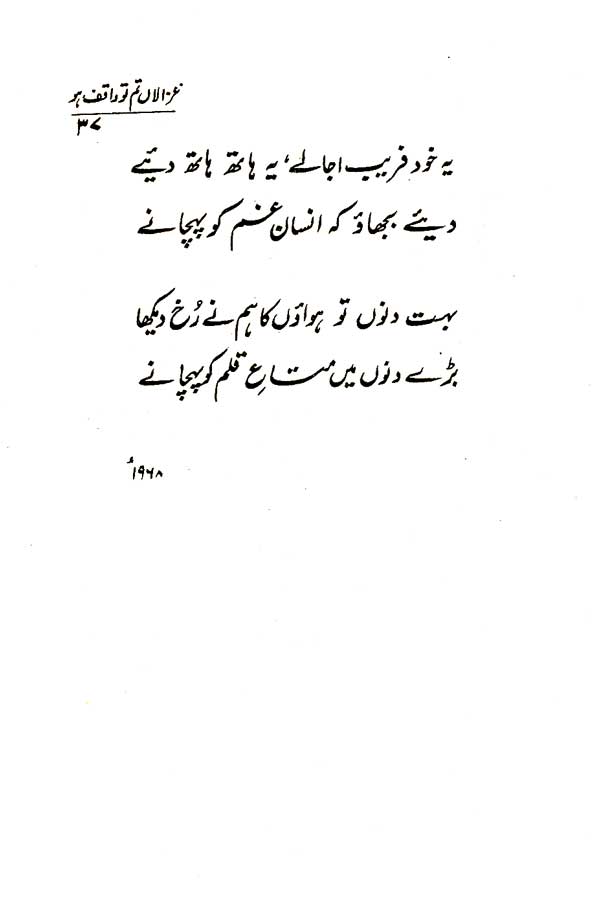 غزالاں تم تو واقف ہو
۳۷
یہ خود فریب اجالے، یہ ہاتھ ہاتھ دئیے
دئیے بجھاؤ کہ انسان غم کو پہچانے
بہت دنوں تو ہواؤں کا ہم نے رُخ دیکھا
بڑے دنوں میں متاعِ قلم کو پہچانے
۱۹۶۸ء